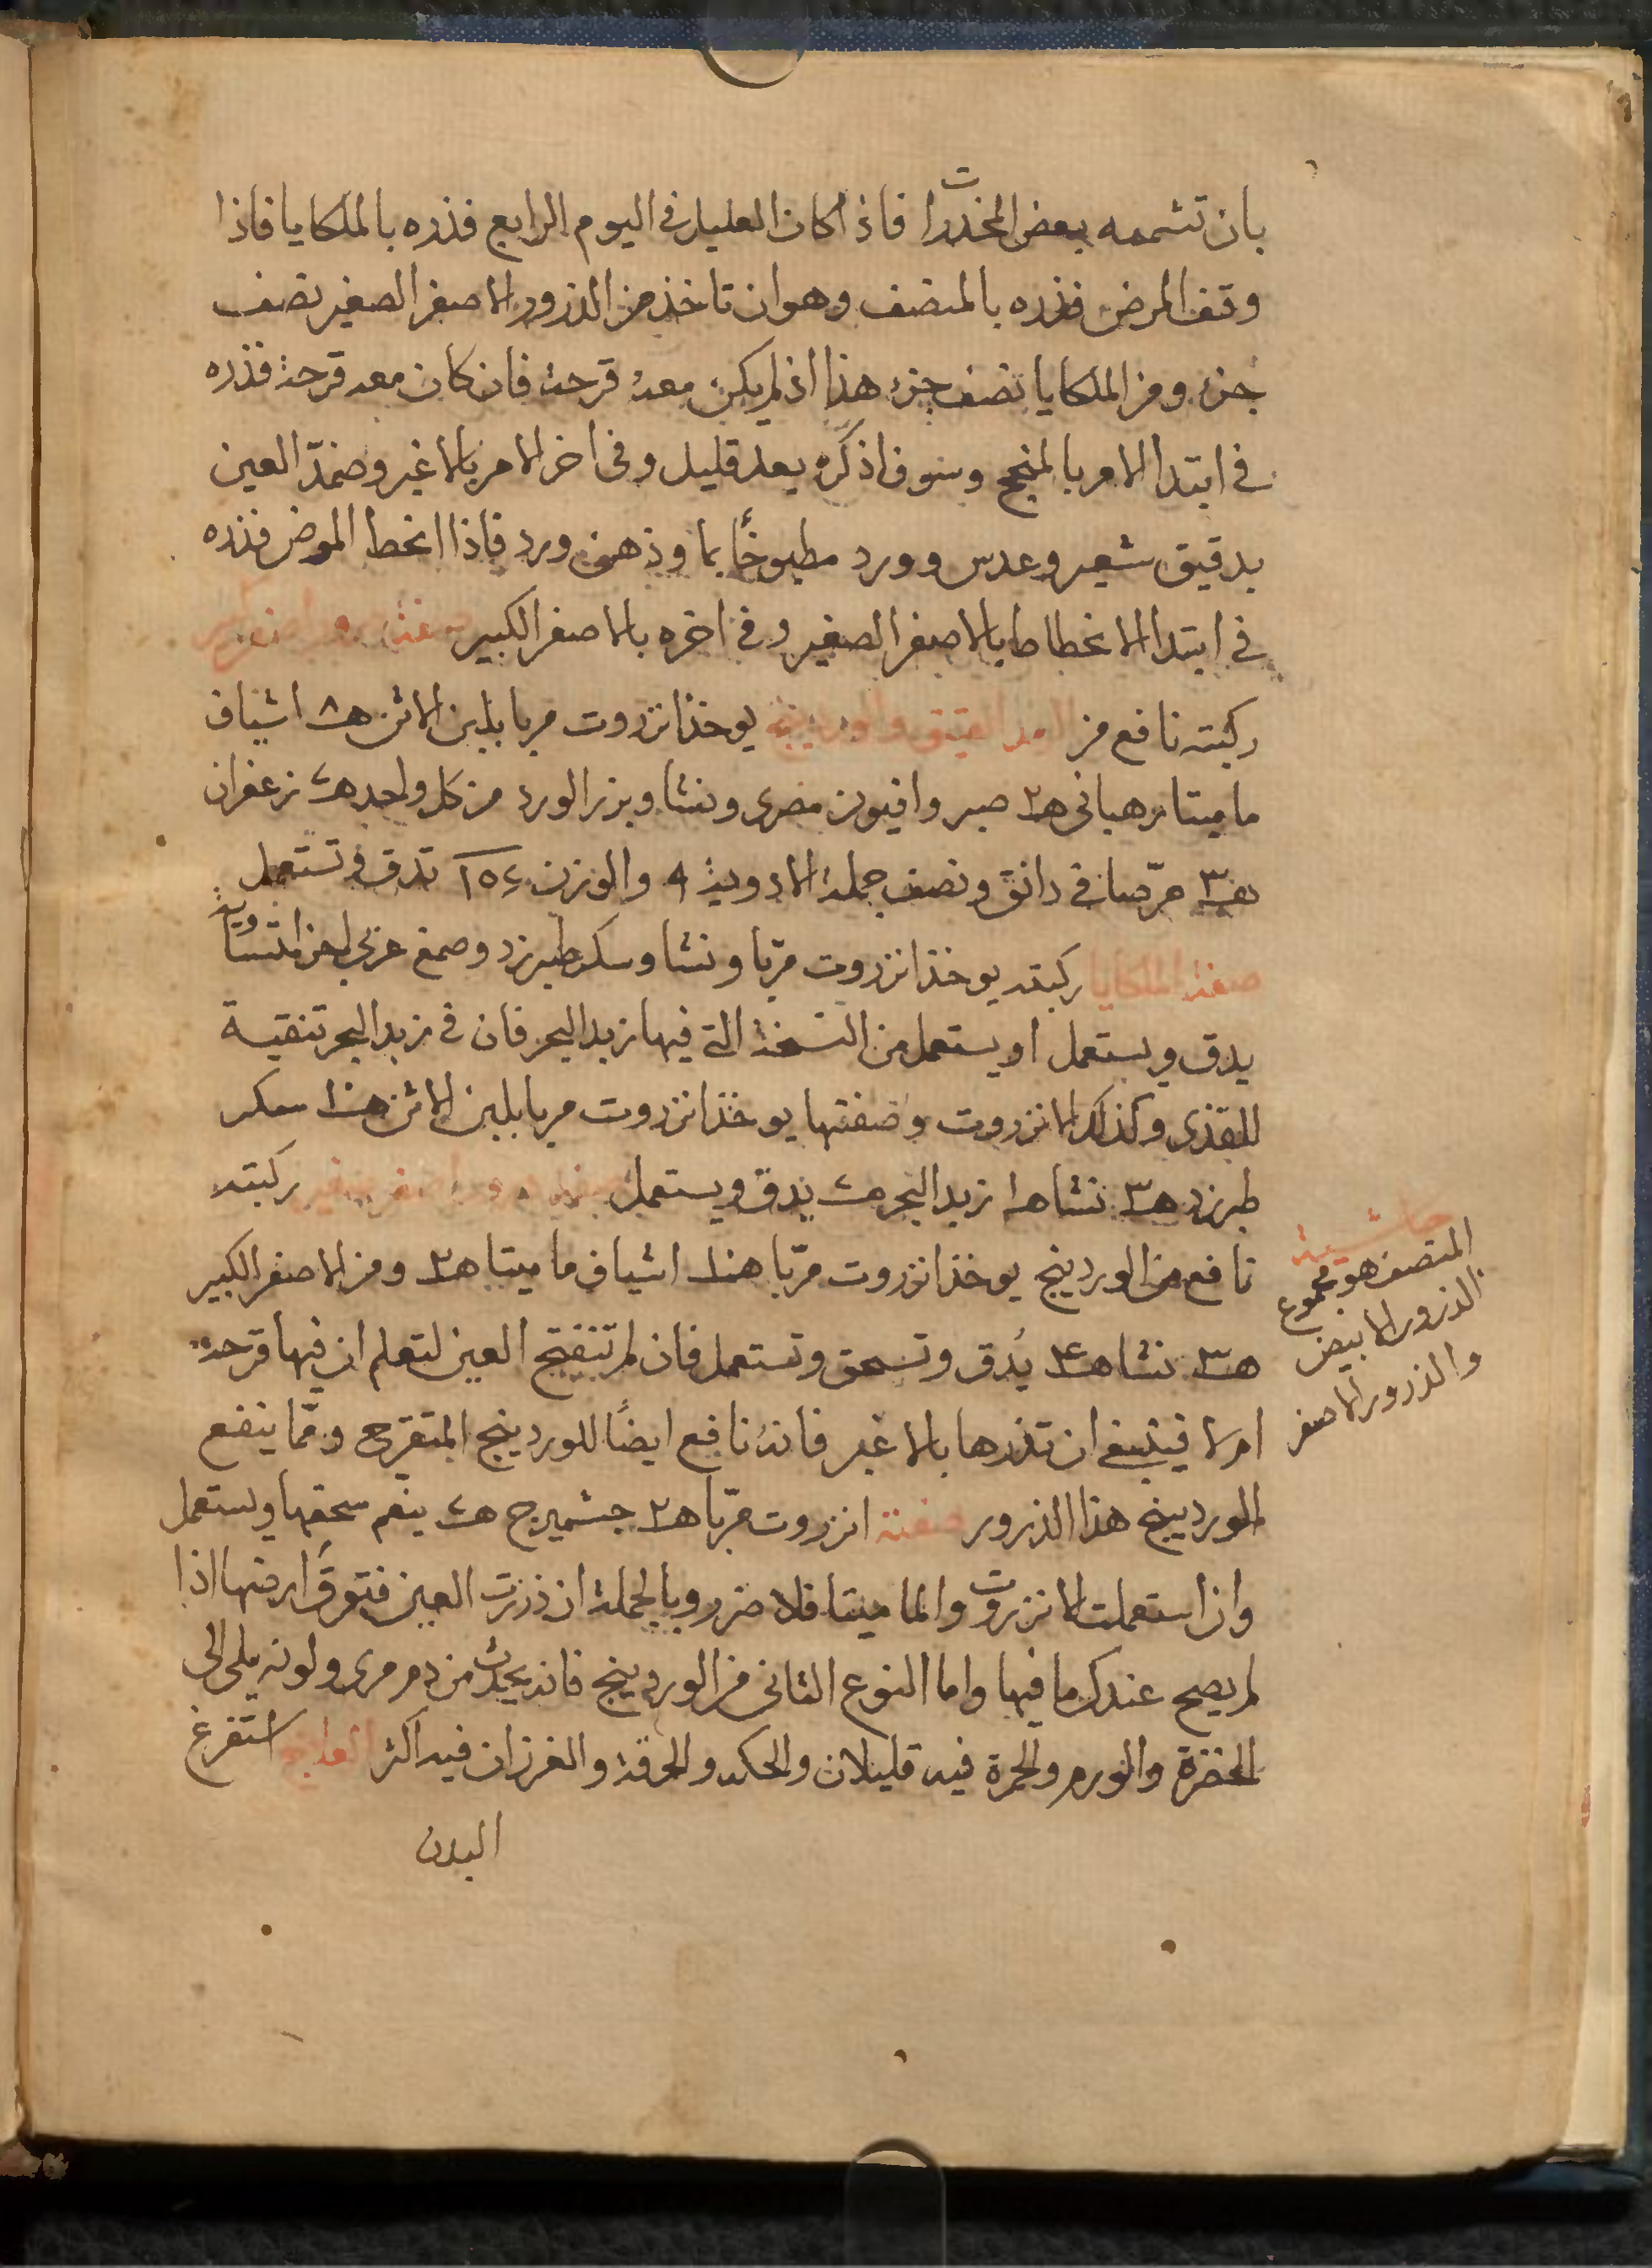 بان تشممه بعض المخدرات فاذا كان العليل في اليوم الرابع فذره بالملكايا فاذا
وقف المرض فذره بالمنصف وهو ان تاخذ من الذرور الاصفر الصغير نصف
جزء ومن الملكايا نصف جزء هذا اذ لم يكن معه قرحة فان كان معه قرحة فذره
في ابتدا الامر بالمنجح وسوف اذكره بعد قليل وفي اخر الامر بالاغبر وضمد العين
بدقيق شعير وعدس وورد مطبوخا بما وذهن ورد فاذا انحط المرض فذره
في ابتدا الانحطاط بالاصفر الصغير وفي اخره بالاصفر الكبير صفة ذرور اصفر كبير
ركبته نافع من الرمد العتيق والوردينج يوخذ انزروت مربا بلبن الاتن ه٨ اشياف
ماميتا رهباني ه٢ صبر وافيون مصرى ونشا وبزر الورد من كل واحد زعفران
مرّصافي دانق ونصف جملة الادوية ٩ والوزن تدق وتستعمل
صفة الملكايا ركبته يوخذ انزروت مربا ونشا وسكر طبرزد وصمغ عربى اجزا متساوية
يدق ويستعمل او يستعمل من النسخة التي فيها زبد البحر فان في زبد البحر تنقية
للقذى وكذلك الانزروت وصفتها يوخذ انزروت مربا بلبن الاتن سكر
طبرزد ه٣ نشا ه١ زبد البحر يدق ويستعمل صفة ذرور اصفر صغير ركبته
نافع من الوردينج يوخذ انزروت مربا اشياف ماميتا ه٢ ومن الاصفر الكبير
ه٣ نشا ه٤ يُدق وتسحق وتستعمل فان لم تنفتح العين لتعلم ان فيها قرحة
ام لا فينبغي ان تذرها بالاغبر فانه نافع ايضًا للوردينج المتقرح ومما ينفع
الوردينج هذا الذرور صفته انزروت مربا ه٢ جشميزج ينعم سحقها ويستعمل
وان استعملت الانزروت والماميتا فلا ضرر وبالجملة ان ذررت العين فتوقَّ ارضها اذا
لم يصح عندك ما فيها واما النوع الثاني من الوردينج فانه يحدث من دم مرى ولونه يلى الى
الخضرة والورم والحمرة فيه قليلان والحكه والحرقة والغرزان فيه اكثر العلاج استفرغ
البدن
حاشية
المنصف هو مجموع
الذرور الابيض
والذرور الاصفر